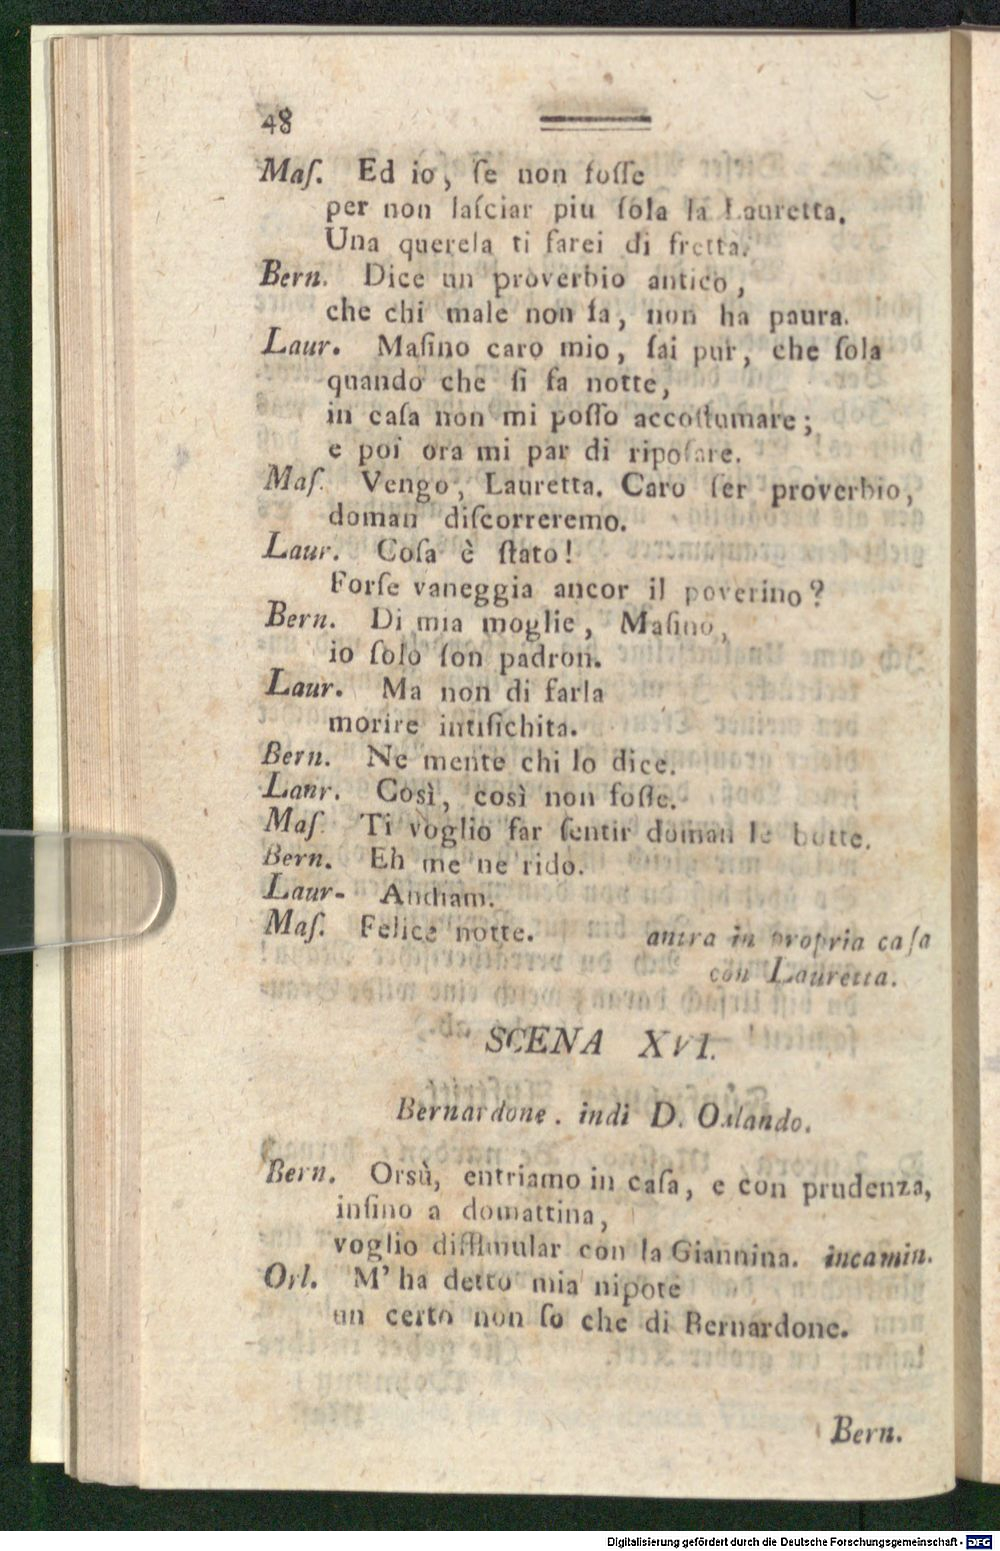 48
Maſ. Ed io, ſe non foſſe
per non laſciar piu ſola la Lauretta.
Una querela ti farei di fretta.
Bern. Dice un proverbio antico,
che chi male non fa, non ha paura.
Laur. Maſino caro mio, ſai pur, che ſola
quando che ſi fa notte,
in caſa non mi poſſo accoſtumare;
e poi ora mi par di ripoſare.
Maſ. Vengo, Lauretta. Caro ſer proverbio,
doman diſcorreremo.
Laur. Coſa è ſtato!
Forſe vaneggia ancor il poverino?
Bern. Di mia moglie, Maſino,
io ſolo ſon padron.
Laur. Ma non di farla
morire intiſichita.
Bern. Ne mente chi lo dice.
Lanr. Così, così non foſſe.
Maſ. Ti voglio far ſentir doman le botte.
Bern. Eh me ne rido.
Laur- Andiam.
Maſ. Felice notte. antra in propria caſa
con Lauretta.
SCENA XVI.
Bernardone. indi D. Orlando.
Bern. Orsù, entriamo in caſa, e con prudenza,
inſino a domattina,
voglio diſſimular con la Giannina. incamin.
Orl. M'ha detto mia nipote
un certo non ſo che di Bernardone.
Bern.
Digitalisierung gefördert durch die Deutsche Forschungsgemeinschaft - DFG